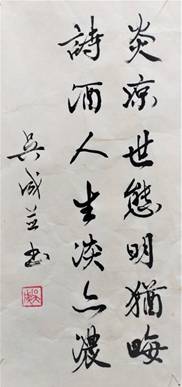 炎涼世態明猶晦
詩酒人生淡亦濃
吳成益書